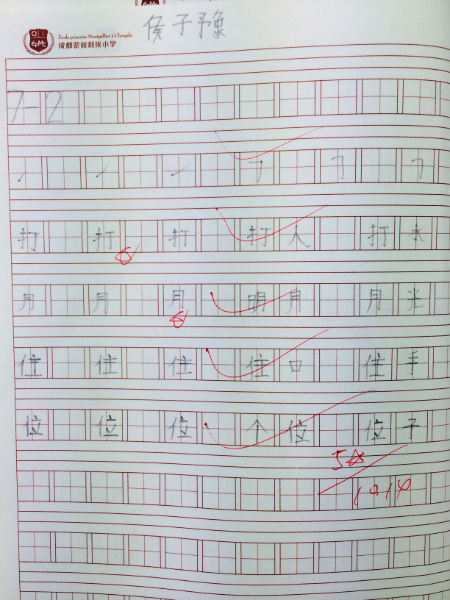 Ecole primaire Montpellier à Chengdu
成都蒙彼利埃小学
侯子豫
7-12
打 打 打 打人 打水
月 月 月 明月 月光
住 住 住 住口 住手
位 位 位 个位 位子
5☆
10.14